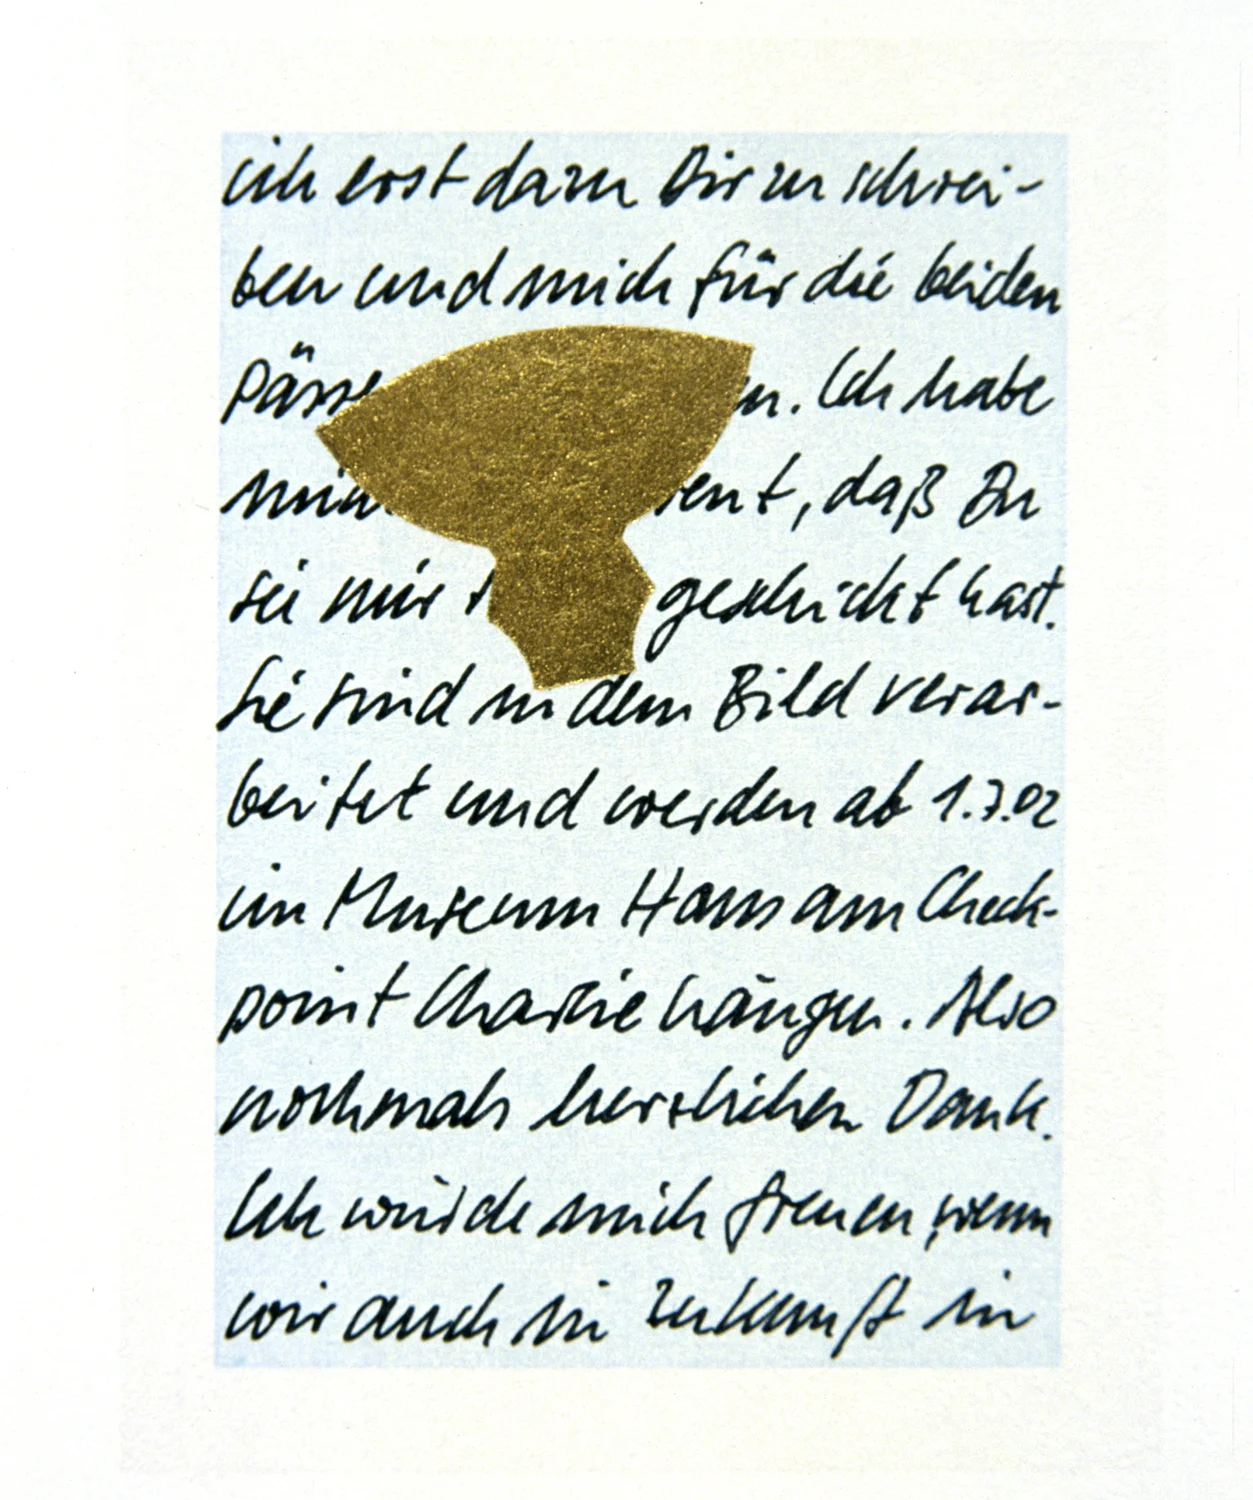 ich erst dazu Dir zu schrei-
ben und mich für die beiden
Pässe n. Ich habe
ent, daß Du
sie mir geschickt hast.
Sie sind in dem Bild verar-
beitet und werden ab 1.7.02
im Museum Haus am Check-
point Charlie hängen. Also
nochmals herzlichen Dank.
Ich würde mich freuen, wenn
wir auch in Zukunft in